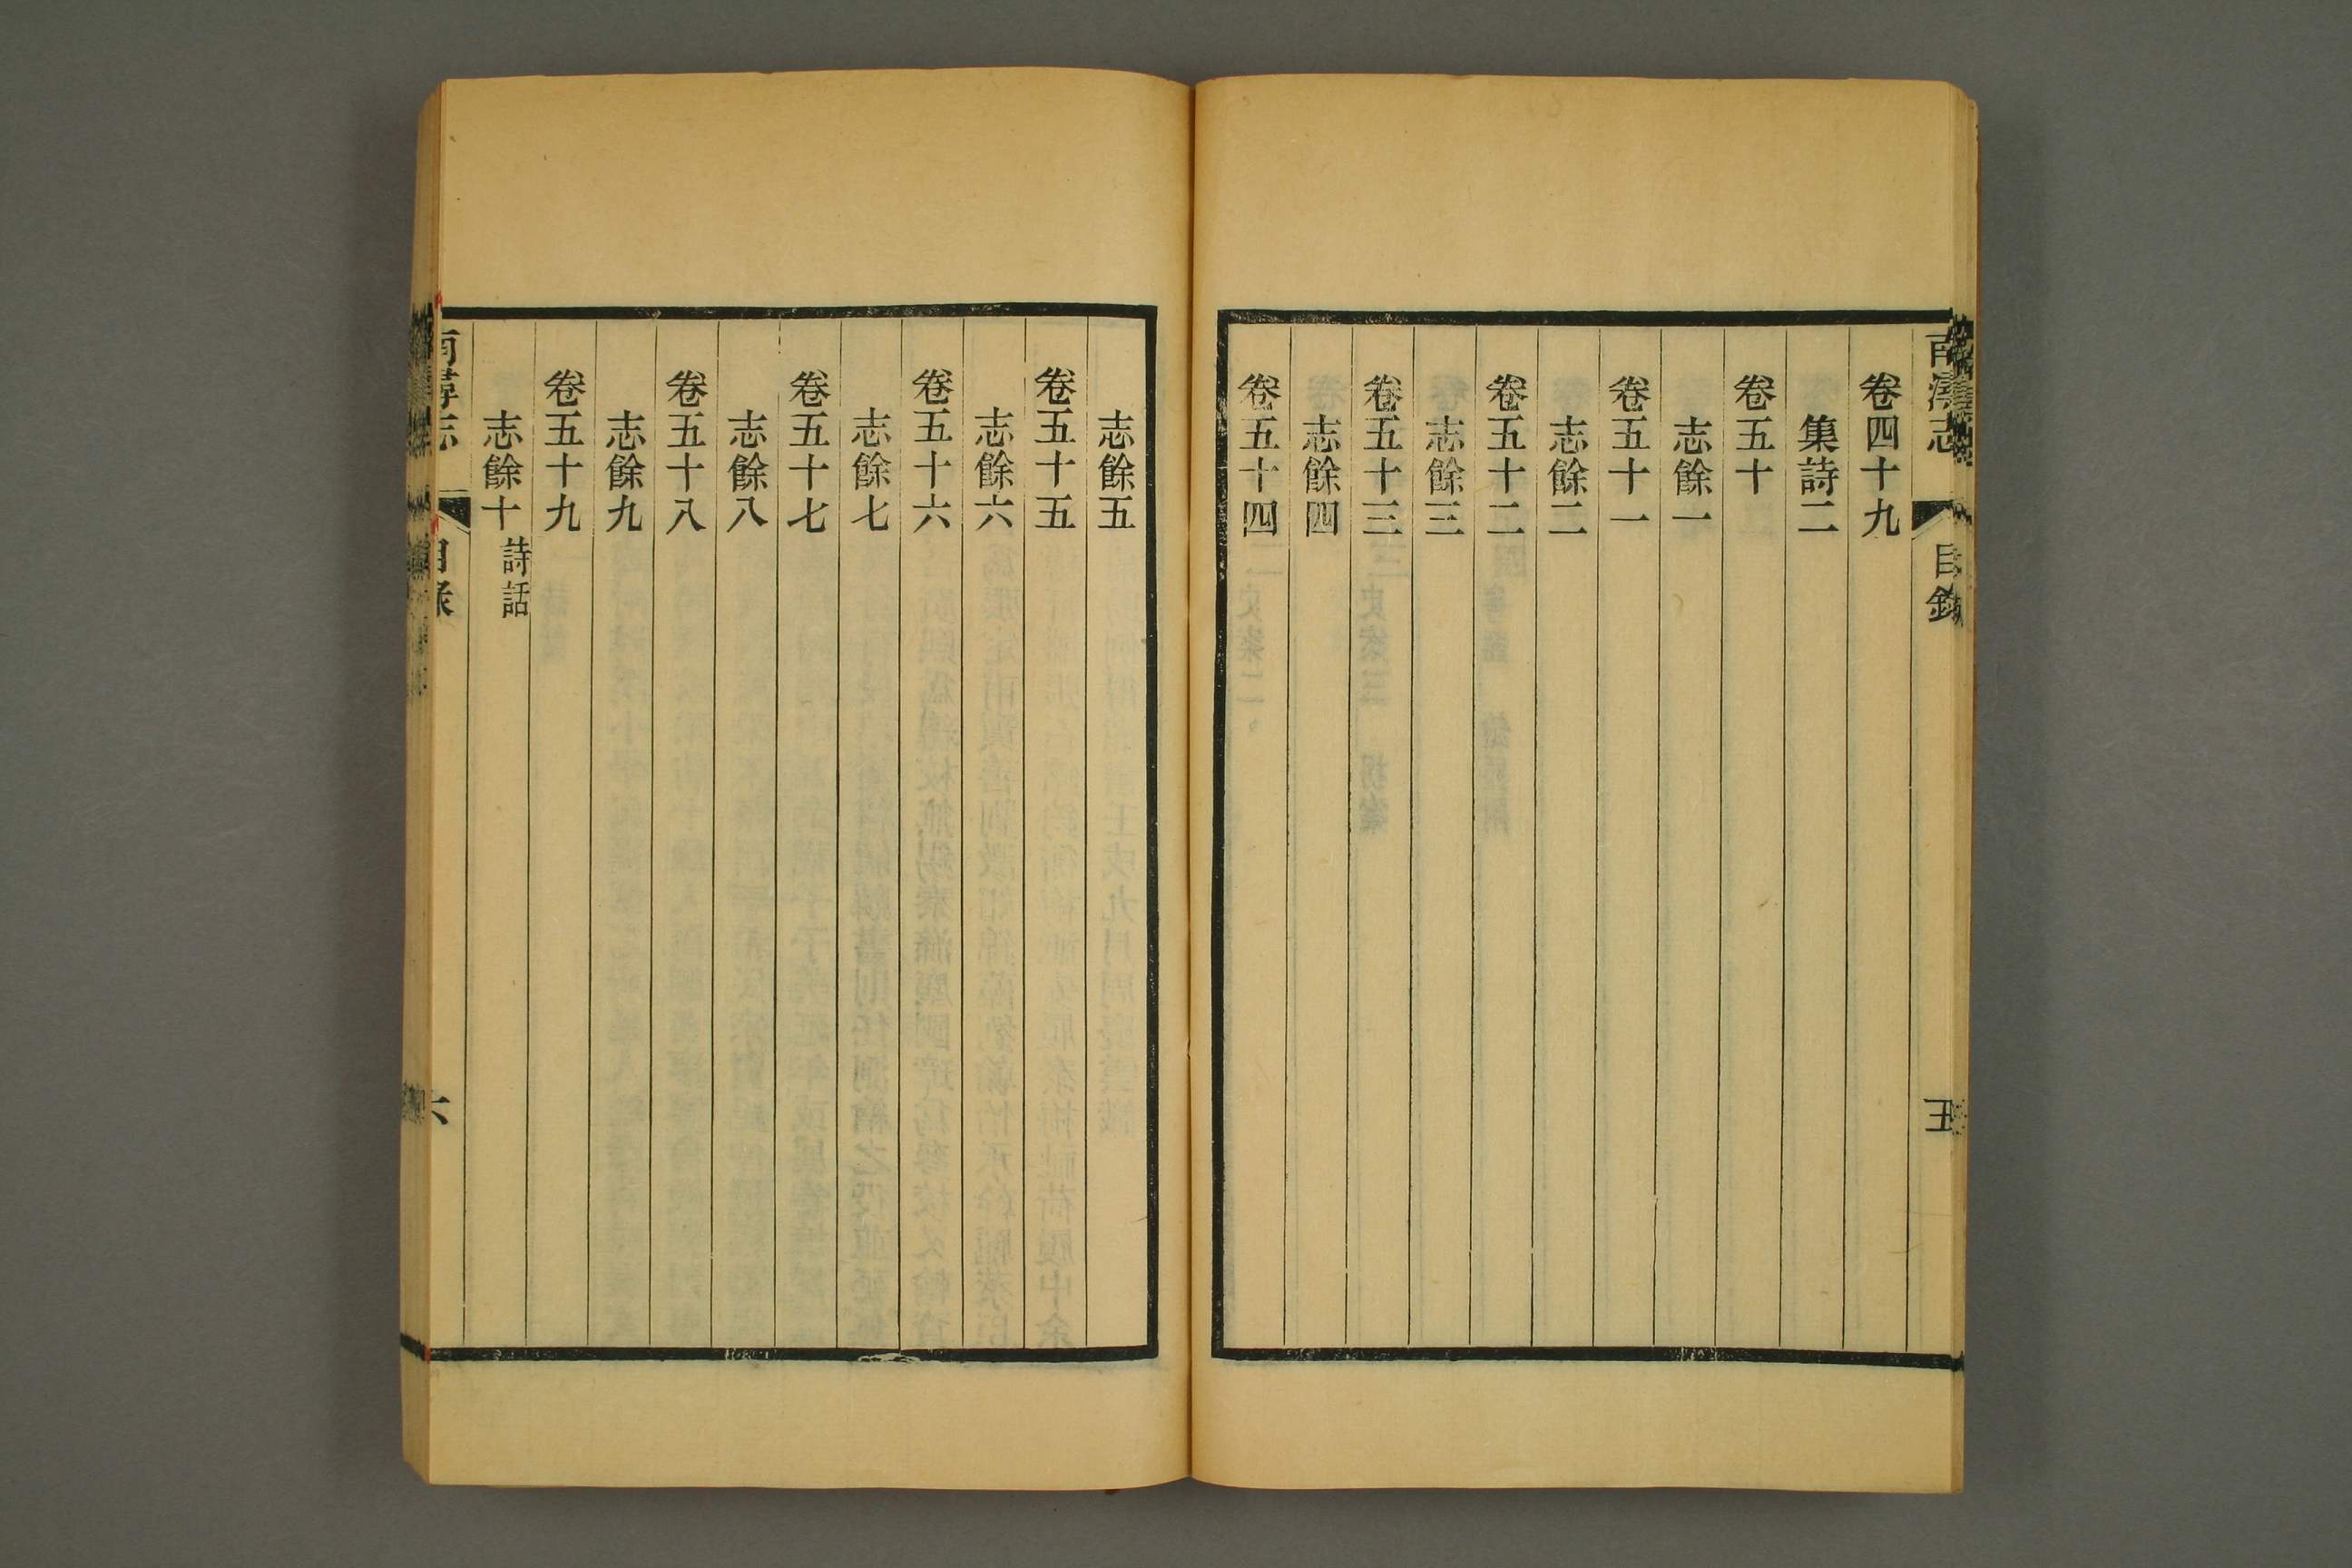 南潯志
目錄
五
卷四十九
集詩二
卷五十
志餘一
卷五十一
志餘二
卷五十二
志餘三
卷五十三
志餘四
卷五十四
志餘五
卷五十五
志餘六
卷五十六
志餘七
卷五十七
志餘八
卷五十八
志餘九
卷五十九
志餘十 詩話
南潯志
目錄
六